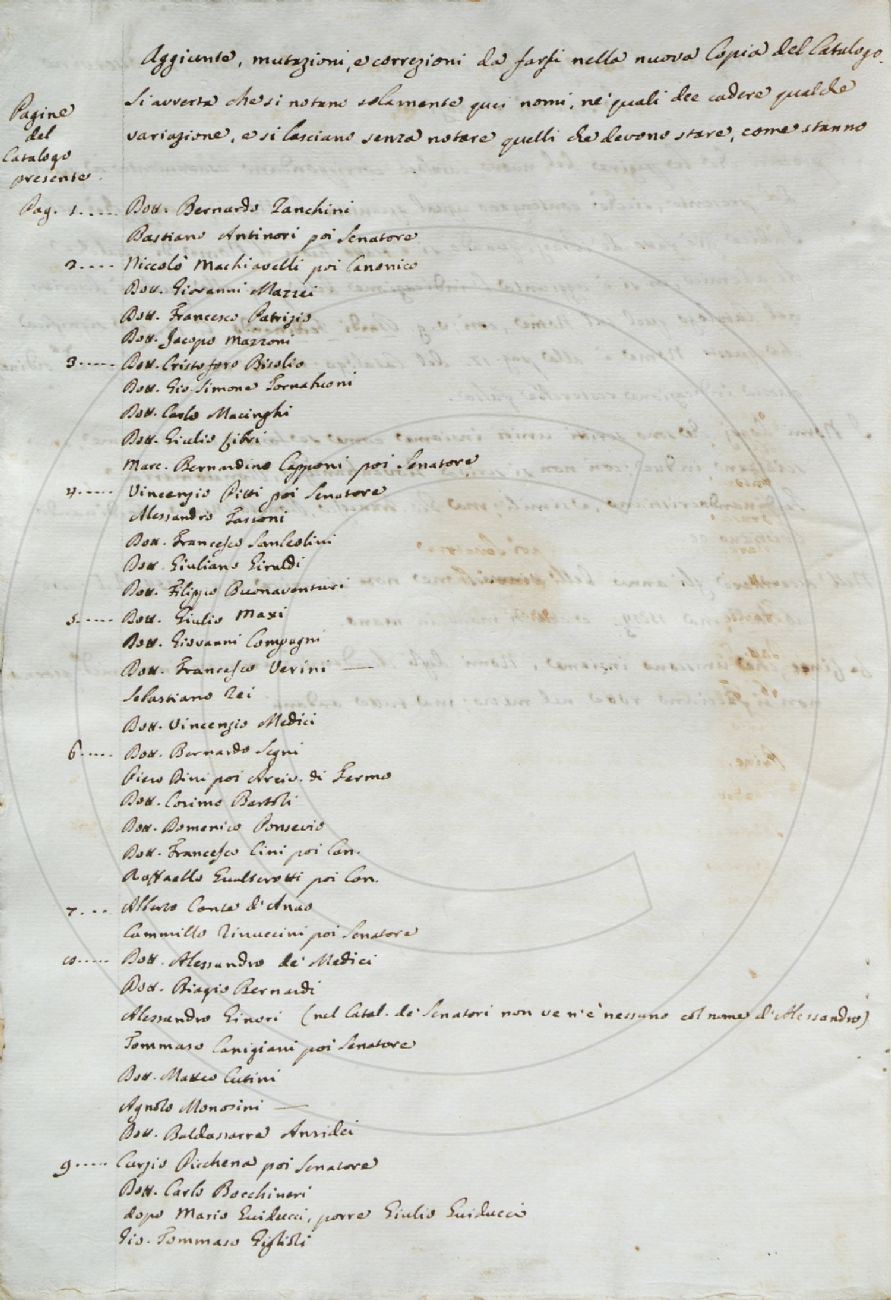 Aggiunte, mutazioni, e correzioni da farsi nella nuova Copia del Catalogo.
Si averta che si notano solamente quei nomi, ne' quali dee cadere qualche
variazione, e si lasciano senza notare quelli che devono stare, come stanno
Pagine
del
Catalogo
presente.
Pag. 1..... Dott. Bernardo Zanchini
Bastiano Antinori poi Senatore
2.... Niccolò Machiavelli poi Canonico
Dott. Giovanni Mazzei
Dott. Francesco Patrizio
Dott. Jacopo Mazzoni
3..... Dott. Cristoforo
Dott. Gio. Simone Tornabuoni
Dott. Carlo Macinghi
Dott. Giulio Libri
Marc. Bernardino Capponi poi Senatore
4..... Vincenzio Pitti poi Senatore
Alessandro Tassoni
Dott. Francesco Sanleolini
Dott. Giuliano Giraldi
Dott. Filippo Buonaventuri
5..... Dott. Giulio Mazi
Dott. Giovanni Compagni
Dott. Francesco Verini —
Sebastiano Zei
Dott. Vincenzio Medici
6..... Dott. Bernardo Segni
Piero Dini poi Arciv. di Fermo
Dott. Cosimo Bartoli
Dott. Domenico Ponsevio
Dott. Francesco Cini poi Can.
Raffaello Gualterotti poi Can.
7... Conte d'
Cammillo Rinuccini poi Senatore
8..... Dott. Alessandro de' Medici
Dott. Biagio Bernardi
Alessandro Ginori (nel Catal. de' Senatori non ve n'è nessuno col nome d'Alessandro)
Tommaso Canigiani poi Senatore
Dott. Matteo Cutini
Agnolo Monosini —
Dott. Baldassarre Ansidei
9..... Curzio Picchena poi Senatore
Dott. Carlo Bocchineri
dopo Mario Guiducci, porre Giulio Guiducci
Gio. Tommaso Giglioli